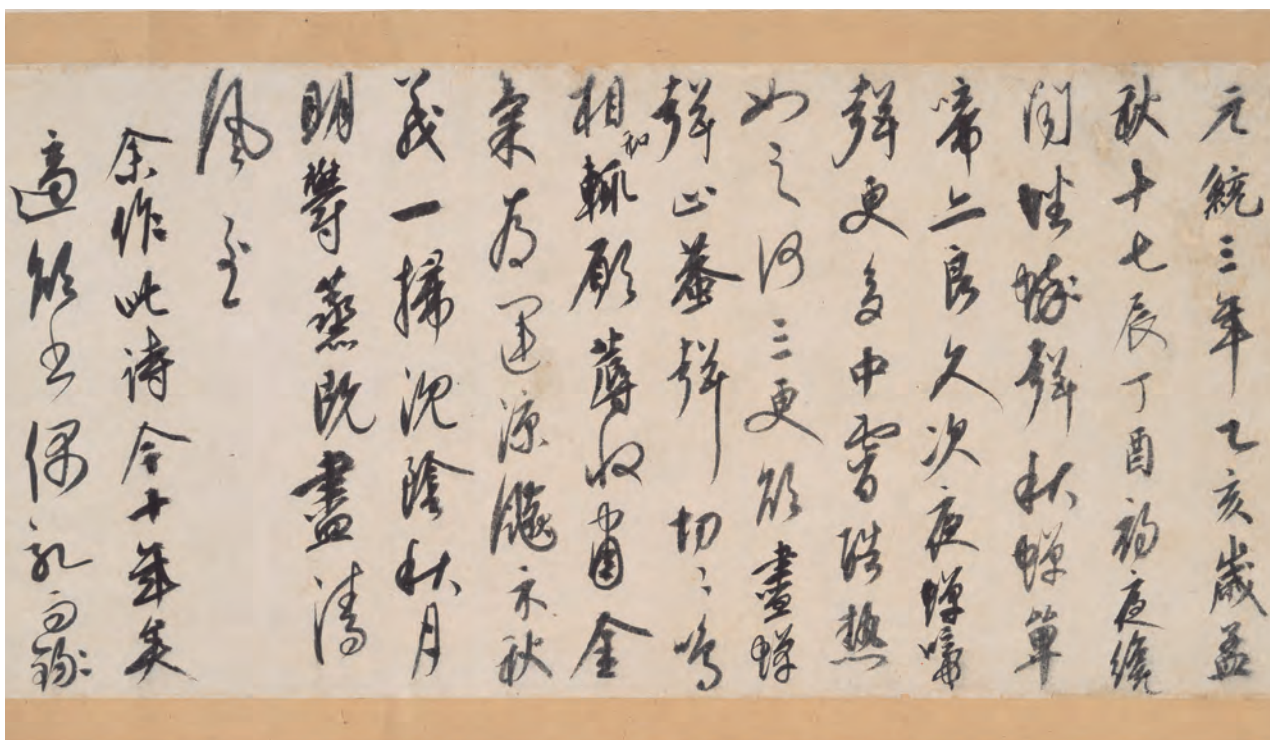 元統三年乙亥歲孟
秋十七辰丁酉初夜纔
聞聲秋蟬單
啼良久次夜蟬啼
聲更多中宵熱
如之何三更欲盡蟬
聲止蛬聲切〻鳴
相和輒願蓐收專金
氣為運涼飈示秋
義一掃沈陰秋月
明鬱蒸既盡清
風至
余作此詩今十年矣
適欲書偶記而錄